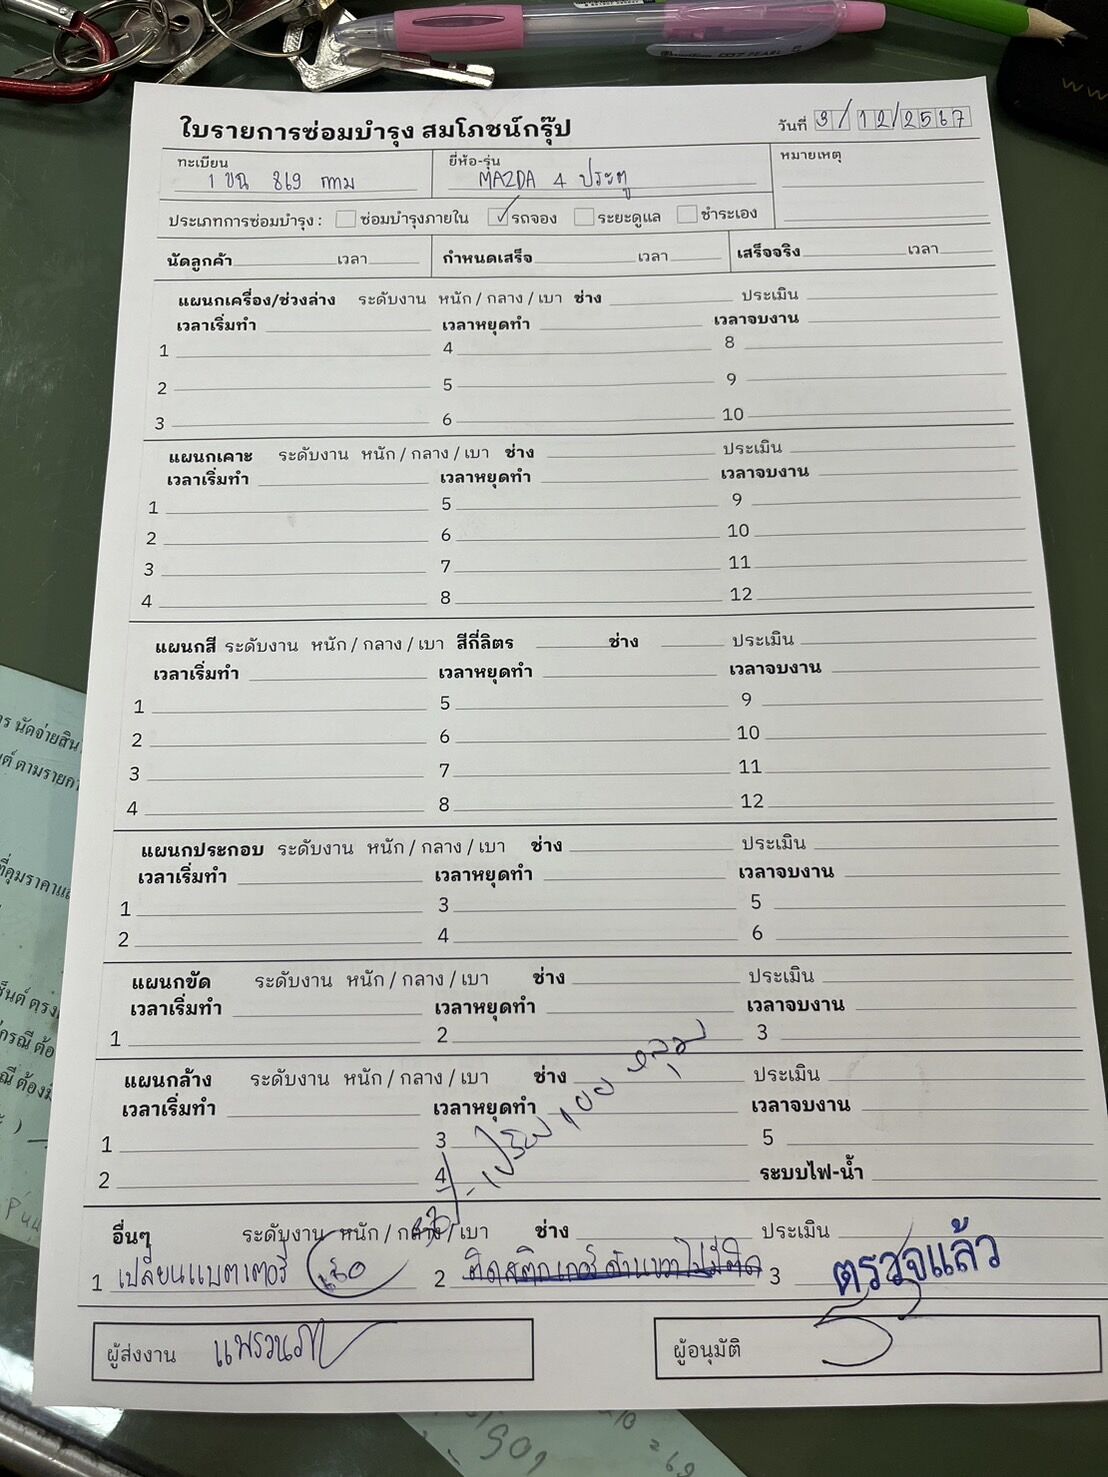 ใบรายการซ่อมบำรุง สมโภชน์กรุ๊ป
วันที่ 3/12/2567
ทะเบียน 1 ขฉ 869 กทม
ยี่ห้อ-รุ่น MAZDA 4 ประตู
หมายเหตุ
ประเภทการซ่อมบำรุง : ซ่อมบำรุงภายใน ✓ รถจอง ระยะดูแล ชำระเอง
นัดลูกค้า เวลา กำหนดเสร็จ เวลา เสร็จจริง เวลา
แผนกเครื่อง/ช่วงล่าง ระดับงาน หนัก / กลาง / เบา ช่าง ประเมิน
เวลาเริ่มทำ เวลาหยุดทำ เวลาจบงาน
1 4 8
2 5 9
3 6 10
แผนกเคาะ ระดับงาน หนัก / กลาง / เบา ช่าง ประเมิน
เวลาเริ่มทำ เวลาหยุดทำ เวลาจบงาน
1 5 9
2 6 10
3 7 11
4 8 12
แผนกสี ระดับงาน หนัก / กลาง / เบา สีกี่ลิตร ช่าง ประเมิน
เวลาเริ่มทำ เวลาหยุดทำ เวลาจบงาน
1 5 9
2 6 10
3 7 11
4 8 12
แผนกประกอบ ระดับงาน หนัก / กลาง / เบา ช่าง ประเมิน
เวลาเริ่มทำ เวลาหยุดทำ เวลาจบงาน
1 3 5
2 4 6
แผนกขัด ระดับงาน หนัก / กลาง / เบา ช่าง ประเมิน
เวลาเริ่มทำ เวลาหยุดทำ เวลาจบงาน
1 2 3
แผนกล้าง ระดับงาน หนัก / กลาง / เบา ช่าง ประเมิน
เวลาเริ่มทำ เวลาหยุดทำ เวลาจบงาน
1 3 5
2 4 ระบบไฟ-น้ำ
อื่นๆ ระดับงาน หนัก / กลาง / เบา ช่าง ประเมิน
1 เปลี่ยนแบตเตอรี่ 2 ติดสติกเกอร์ด้านขวาไม่มีติด 3 ตรวจแล้ว
ผู้ส่งงาน แพรวนภา
ผู้อนุมัติ